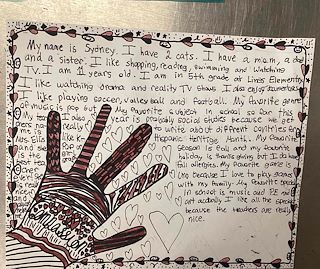 My name is Sydney. I have 2 cats. I have a mom, a dad
and a sister. I like shopping, reading, swimming and watching
TV. I am 11 years old. I am in 5th grade at Lines Elementry.
I like watching drama and reality TV shows. I also enjoy
I like playing soccer, volley ball and football. My favorite genre
of music is pop but My favorite subject in school so far this
year is probally social studies because we get
to write about different countries for
Hispanic Heritage Month. My favorite
season is Fall and my favorite
holiday is thanks giving but I do have
fall allergies. My favorite game is
Uno because I love to play games
with my family. My favorite specials
in school is music and P.E and
art actually I like all the specials
because the teachers are really
nice.